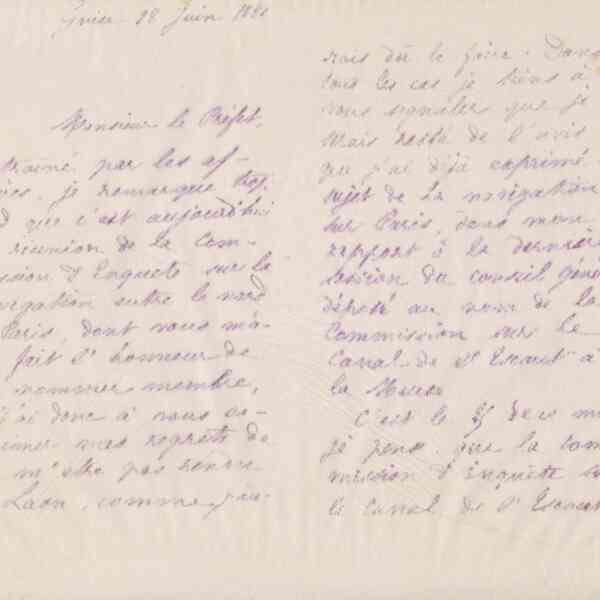 Guise 28 Juin 1880
Monsieur le Préfet,
traîné par les af-
je remarque trop
que c'est aujourd'hui
réunion de la Com-
ssion d'Enquête sur la
vigation entre le nord
Paris, dont vous m'a-
fait l'honneur de
nommer membre,
j'ai donc à vous ex-
primer mes regrets de
m'être pas rendu
Laon, comme j'au-
rais dû le faire. Dans
tous les cas je tiens à
vous signaler que je
reste de l'avis
que j'ai déjà exprimé
sujet de la navigation
sur Paris, dans mon
rapport à la dernière
session du conseil géné
déposé au nom de la
Commission sur le
Canal de l'Escaut à
la Meuse
C'est le de ce m
je pense que la com
mission d'Enquête su
le Canal de l'Escaut